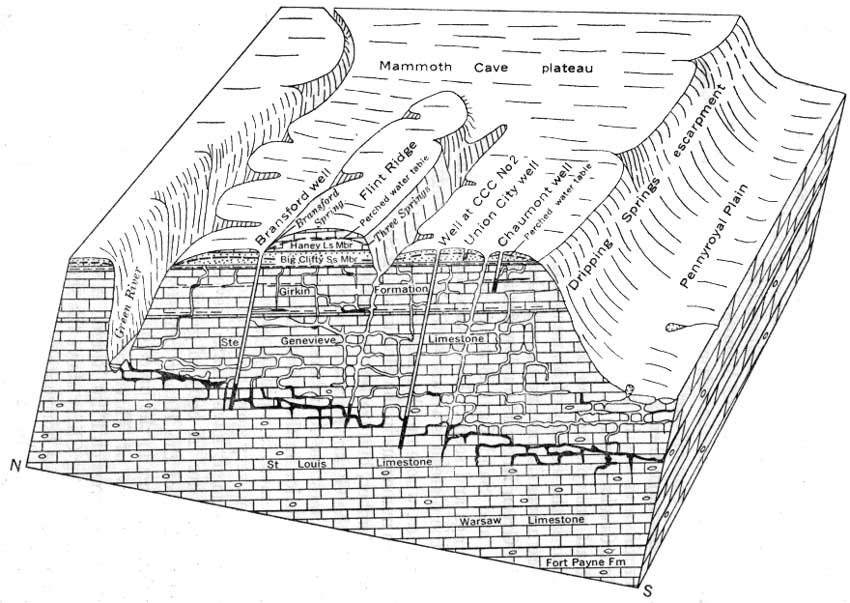 Mammoth Cave plateau
Dripping Springs escarpment
Pennyroyal Plain
Green River
Bransford well
Bransford
Spring
Flint Ridge
Perched water table
Three Springs
Well at CCC No2
Union City well
Chaumont well
Perched water table
Haney Ls Mbr
Big Clifty Ss Mbr
Girkin Formation
Ste Genevieve Limestone
St Louis Limestone
Warsaw Limestone
Fort Payne Fm
N
S